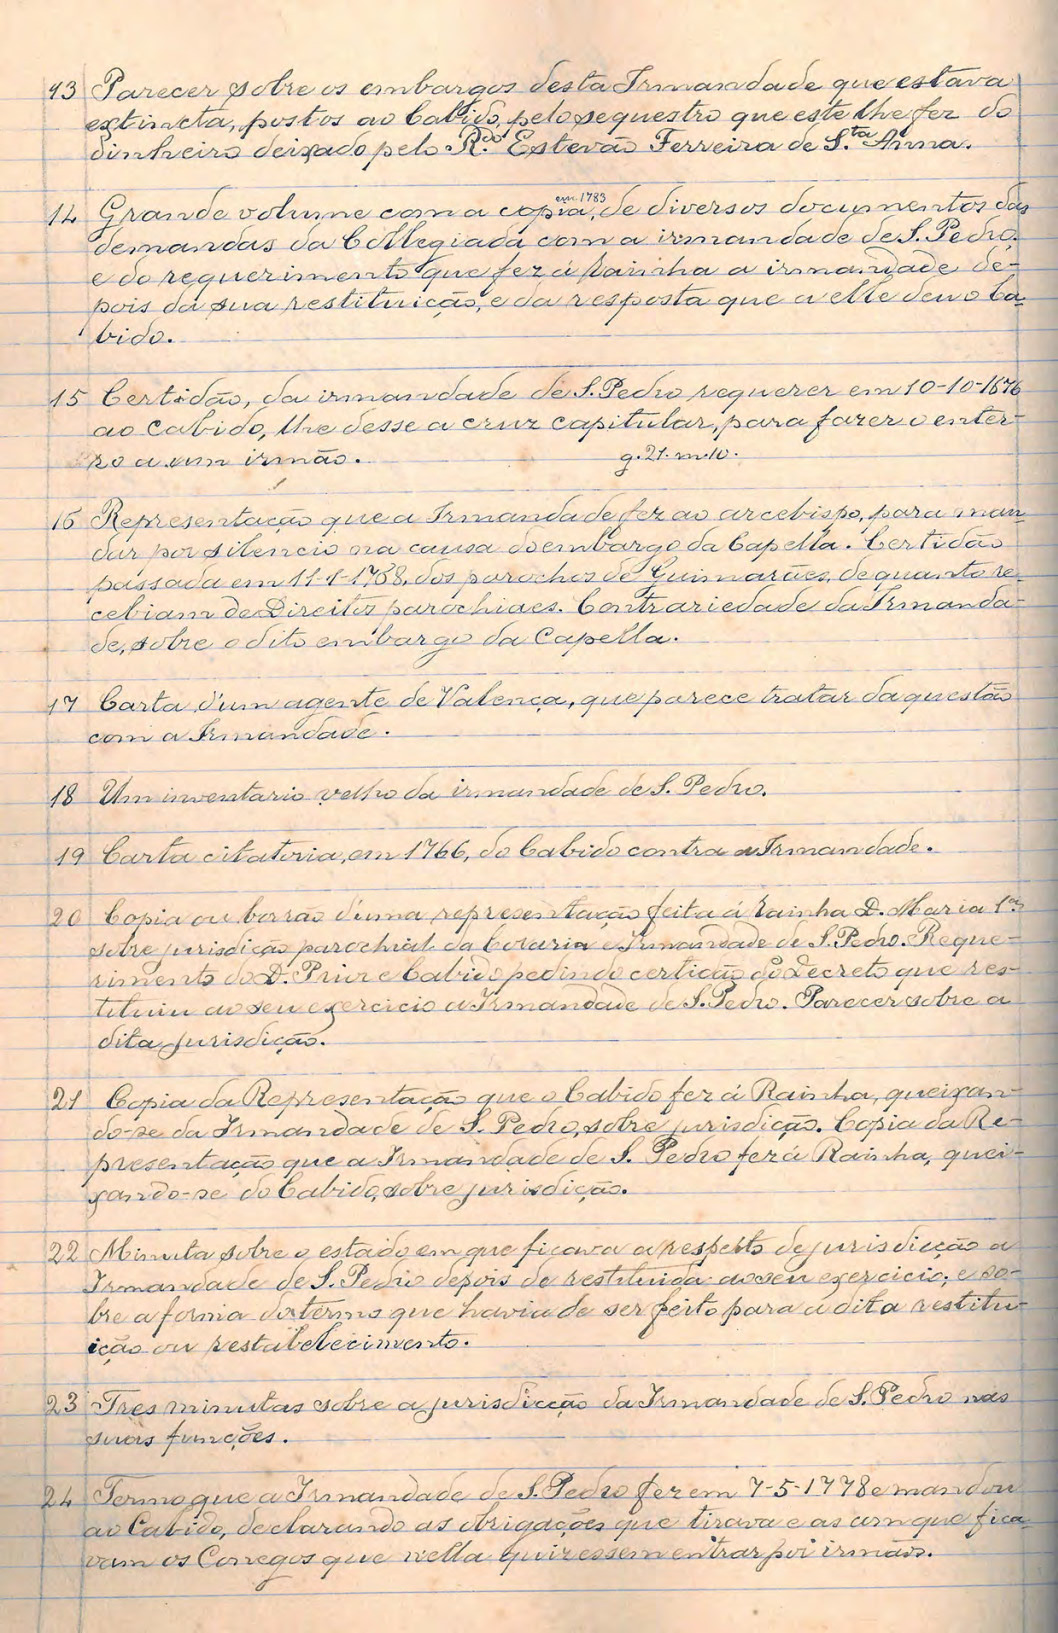 13 Parecer sobre os embargos desta Irmandade que estava
extincta, postos ao Cabido, pelo sequestro que este lhe fez do
dinheiro deixado pelo R.do Estevão Ferreira de S.ta Anna.
14 Grande volume com a copia, em 1783 de diversos documentos das
demandas da Collegiada com a irmandade de S. Pedro,
e do requerimento que fez á rainha a irmandade de-
pois da sua restituição, e da resposta que a elle deu o Ca-
bido.
15 Certidão, da irmandade de S. Pedro requerer em 10-10-1676
ao cabido, lhe desse a cruz capitular, para fazer o enter-
ro a um irmão. g. 21. m. 10.
16 Representação que a Irmandade fez ao arcebispo, para man-
dar por silencio na causa do embargo da Capella. Certidão
passada em 11-1-1768, dos parochos de Guimarães, de quanto re-
cebiam de Direitos parochiaes. Contrariedade da Irmanda-
de, sobre o dito embargo da Capella.
17 Carta d'um agente de Valença, que parece tratar da questão
com a Irmandade.
18 Um inventario velho da irmandade de S. Pedro.
19 Carta citatoria, em 1766, do Cabido contra a Irmandade.
20 Copia ou borrão d'uma representação feita á rainha D. Maria 1.ª
sobre jurisdição parochial da Coraria e Irmandade de S. Pedro. Reque-
rimento do D. Prior e Cabido pedindo certidão do Decreto que res-
tituiu ao seu exercicio a Irmandade de S. Pedro. Parecer sobre a
dita jurisdição.
21 Copia da Representação que o Cabido fez á Rainha, queixan-
do-se da Irmandade de S. Pedro, sobre jurisdição. Copia da Re-
presentação que a Irmandade de S. Pedro fez á Rainha, quei-
xando-se do Cabido, sobre jurisdição.
22 Minuta sobre o estado em que ficava a respeito de jurisdicção a
Irmandade de S. Pedro depois de restituida ao seu exercicio; e so-
bre a forma do termo que havia de ser feito para a dita restitu-
ição ou restabelecimento.
23 Tres minutas sobre a jurisdicção da Irmandade de S. Pedro nas
suas funcções.
24 Termo que a Irmandade de S. Pedro fez em 7-5-1778 e mandou
ao Cabido, declarando as obrigações que tirava e as com que fica-
vam os Conegos que n'ella quizessem entrar por irmãos.